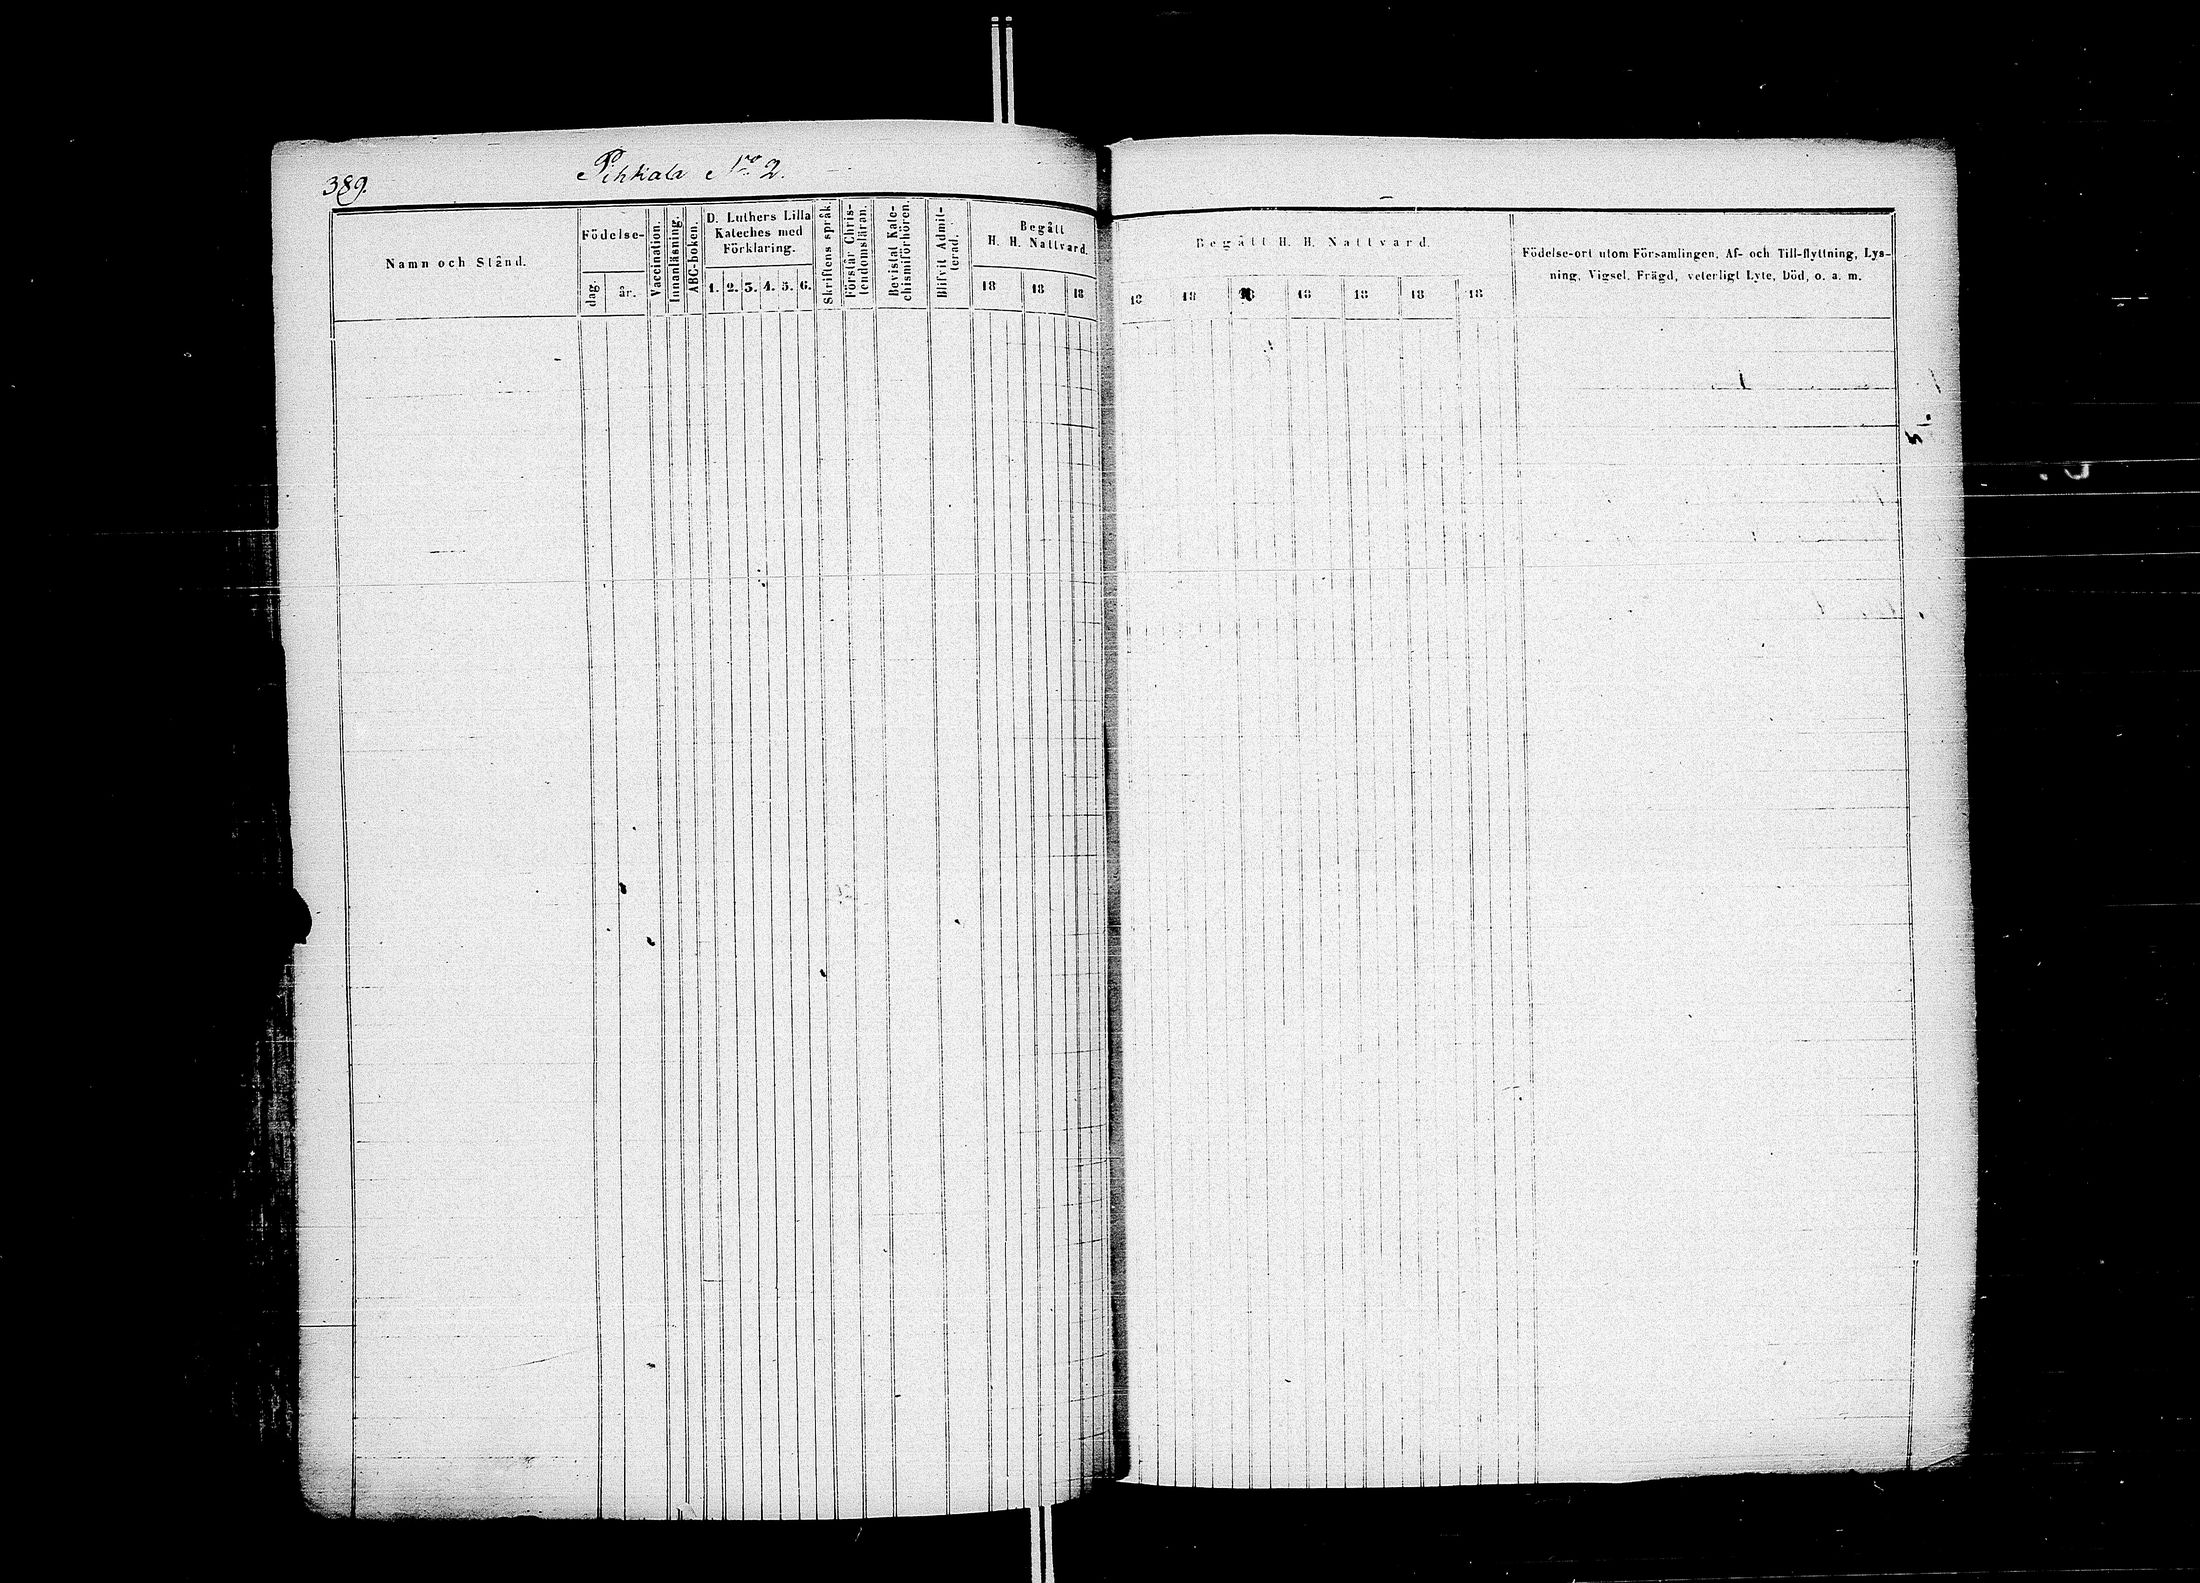 389.
Pihkala No 2.
Namn och Stånd.
Födelse-
dag.
år.
Vaccination.
Innanläsning.
ABC-boken.
D. Luthers Lilla
Kateches med
Förklaring.
1. 2. 3. 4. 5. 6.
Skriftens språk.
Förstår Chris-
tendomsläran.
Bevistat Kate-
chismiförhören.
Blifvit Admit-
terad.
Begått
H. H. Nattvard.
18 18 18
Begått H. H. Nattvard.
18 18 18 18 18 18 18
Födelse-ort utom Församlingen, Af- och Till-flyttning, Lys-
ning, Vigsel, Frägd, veterligt Lyte, Död, o. a. m.